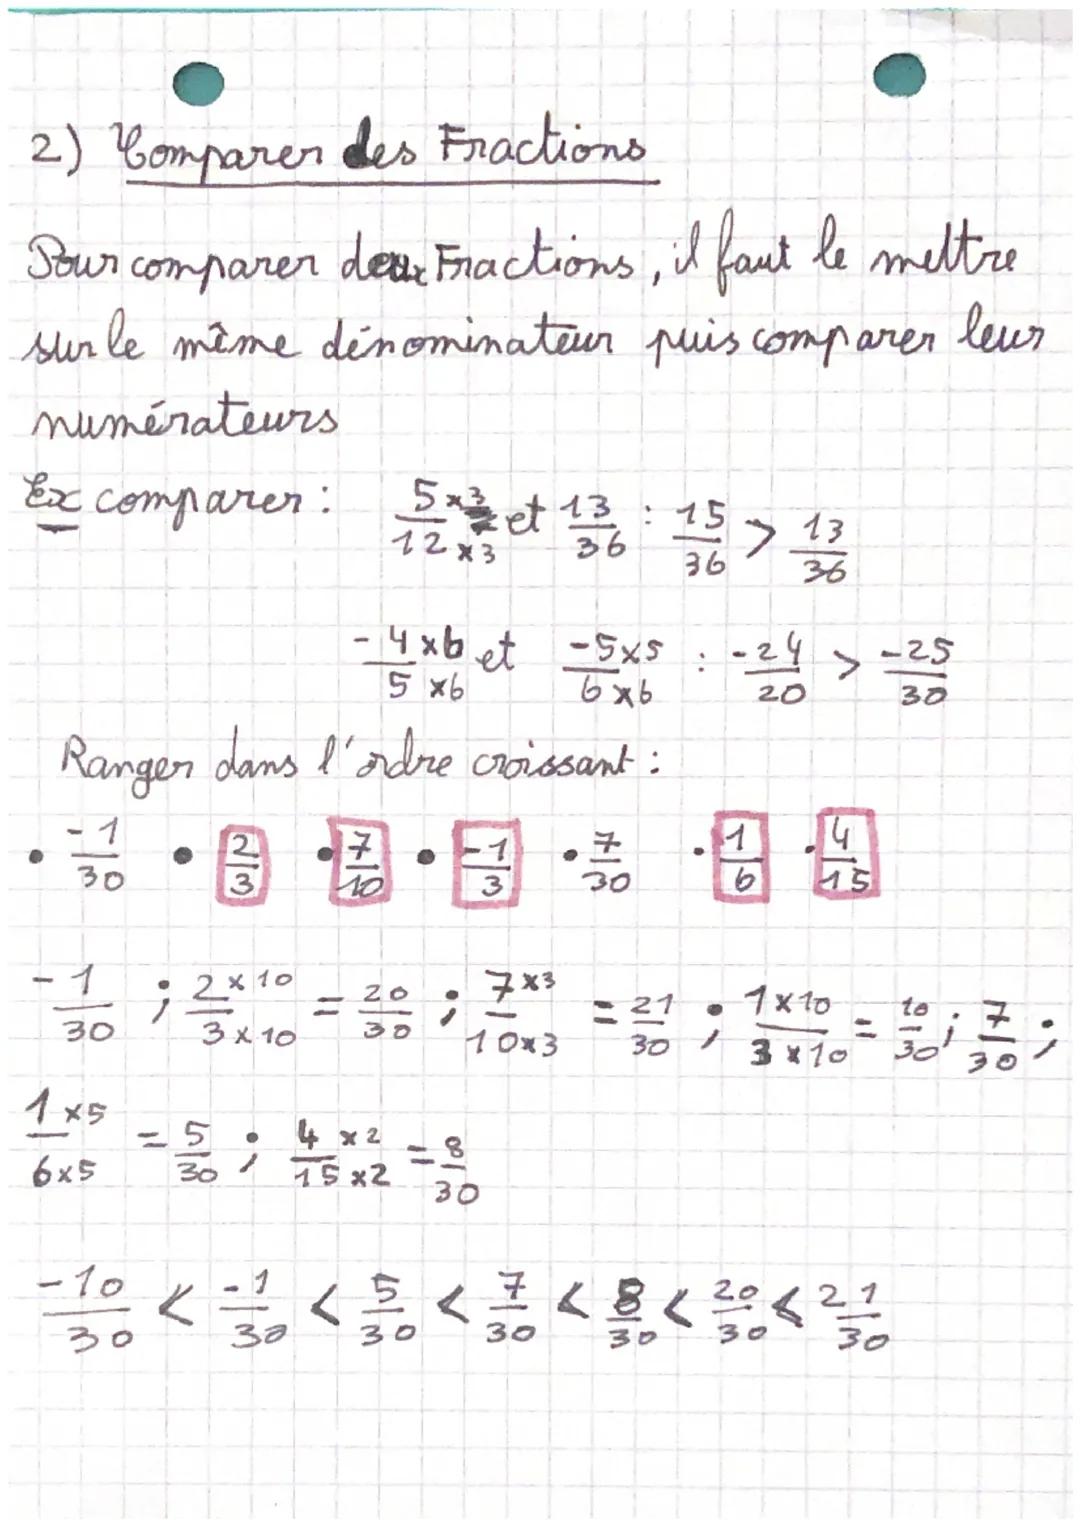 2) Comparer des Fractions
Pour comparer deux Fractions, il faut le mettre
sur le même dénominateur puis comparer leur
numérateurs
Ex comparer : 5×3/12×3 et 13/36 : 15/36 > 13/36
-4×6/5×6 et -5×5/6×6 : -24/20 > -25/30
Ranger dans l'ordre croissant :
• -1/30 • 2/3 • 7/10 • -1/3 • 7/30 • 1/6 • 4/15
-1/30 ; 2×10/3×10 = 20/30 ; 7×3/10×3 = 21/30 ; 1×10/3×10 = 10/30 ; 7/30 ;
1×5/6×5 = 5/30 ; 4×2/15×2 = 8/30
-10/30 < -1/30 < 5/30 < 7/30 < 8/30 < 20/30 < 21/30